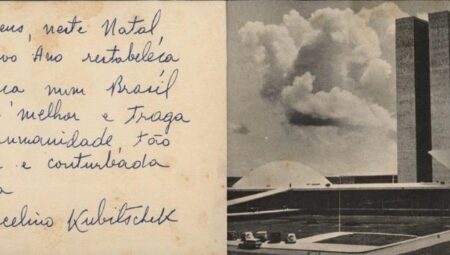 eus, neste Natal,
vo Ano restabeleça
ça num Brasil
melhor e traga
umanidade, tão
e conturbada
a
celino Kubitschek